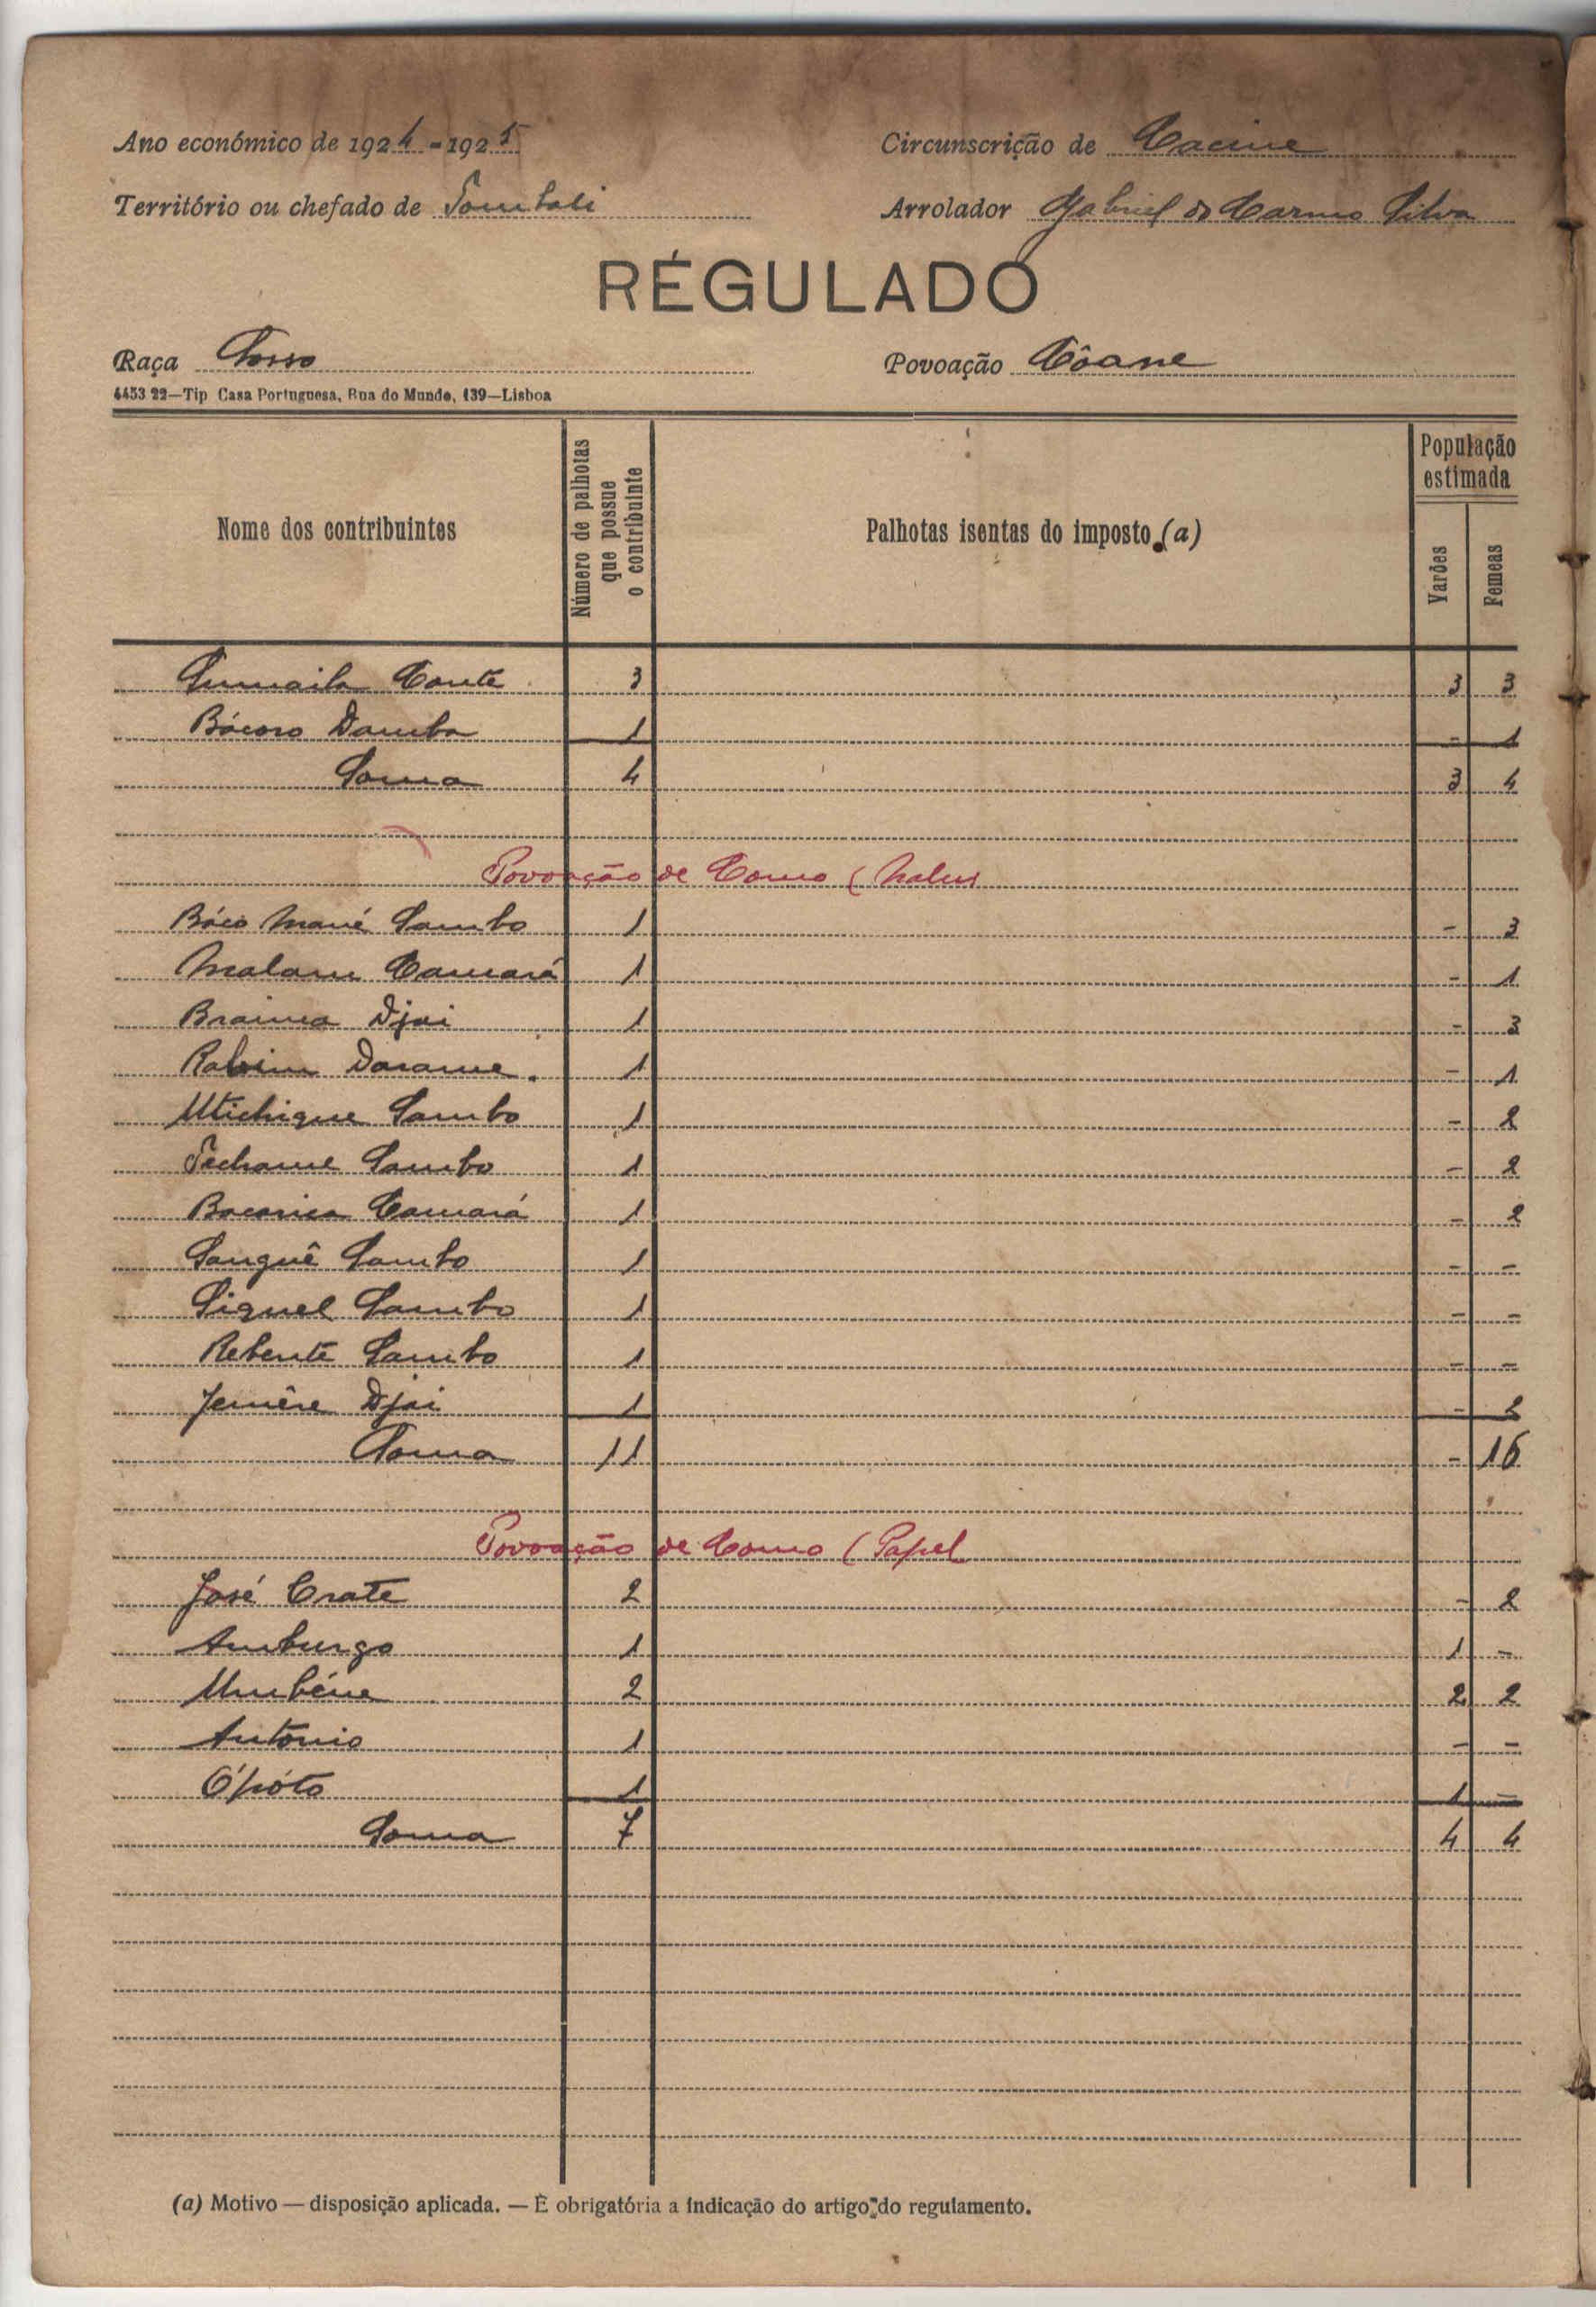 Ano económico de 1924-1925
Circunscrição de Cacine
Território ou chefado de Tombali
Arrolador Gabriel do Carmo Silva
RÉGULADO
Raça Sosso
Povoação Côane
4453 22—Tip Casa Portuguesa, Rua do Mundo, 139—Lisboa
Nome dos contribuintes
Número de palhotas que possue o contribuinte
Palhotas isentas do imposto (a)
População estimada
Varões
Femeas
Sumaila Conte 3 3 3
Bócoro Damba 1 - 1
Soma 4 3 4
Povoação de Como (Nalus
Bóco Mané Sambo 1 - 3
Malam Camará 1 - 1
Braima Djai 1 - 3
Rabim Darame. 1 - 1
Sambo 1 - 2
Techame Sambo 1 - 2
Bacarica Camará 1 - 2
Sanguê Sambo 1 - -
Siquel Sambo 1 - -
Rebenté Sambo 1 - -
Djai 1 -
Soma 11 - 16
Povoação de Como (Papel
José Crate 2 - 2
Amburgo 1 1 -
Umbéne 2 2 2
António 1 - -
Ópóto 1 1 -
Soma 7 4 4
(a) Motivo — disposição aplicada. — É obrigatória a indicação do artigo do regulamento.